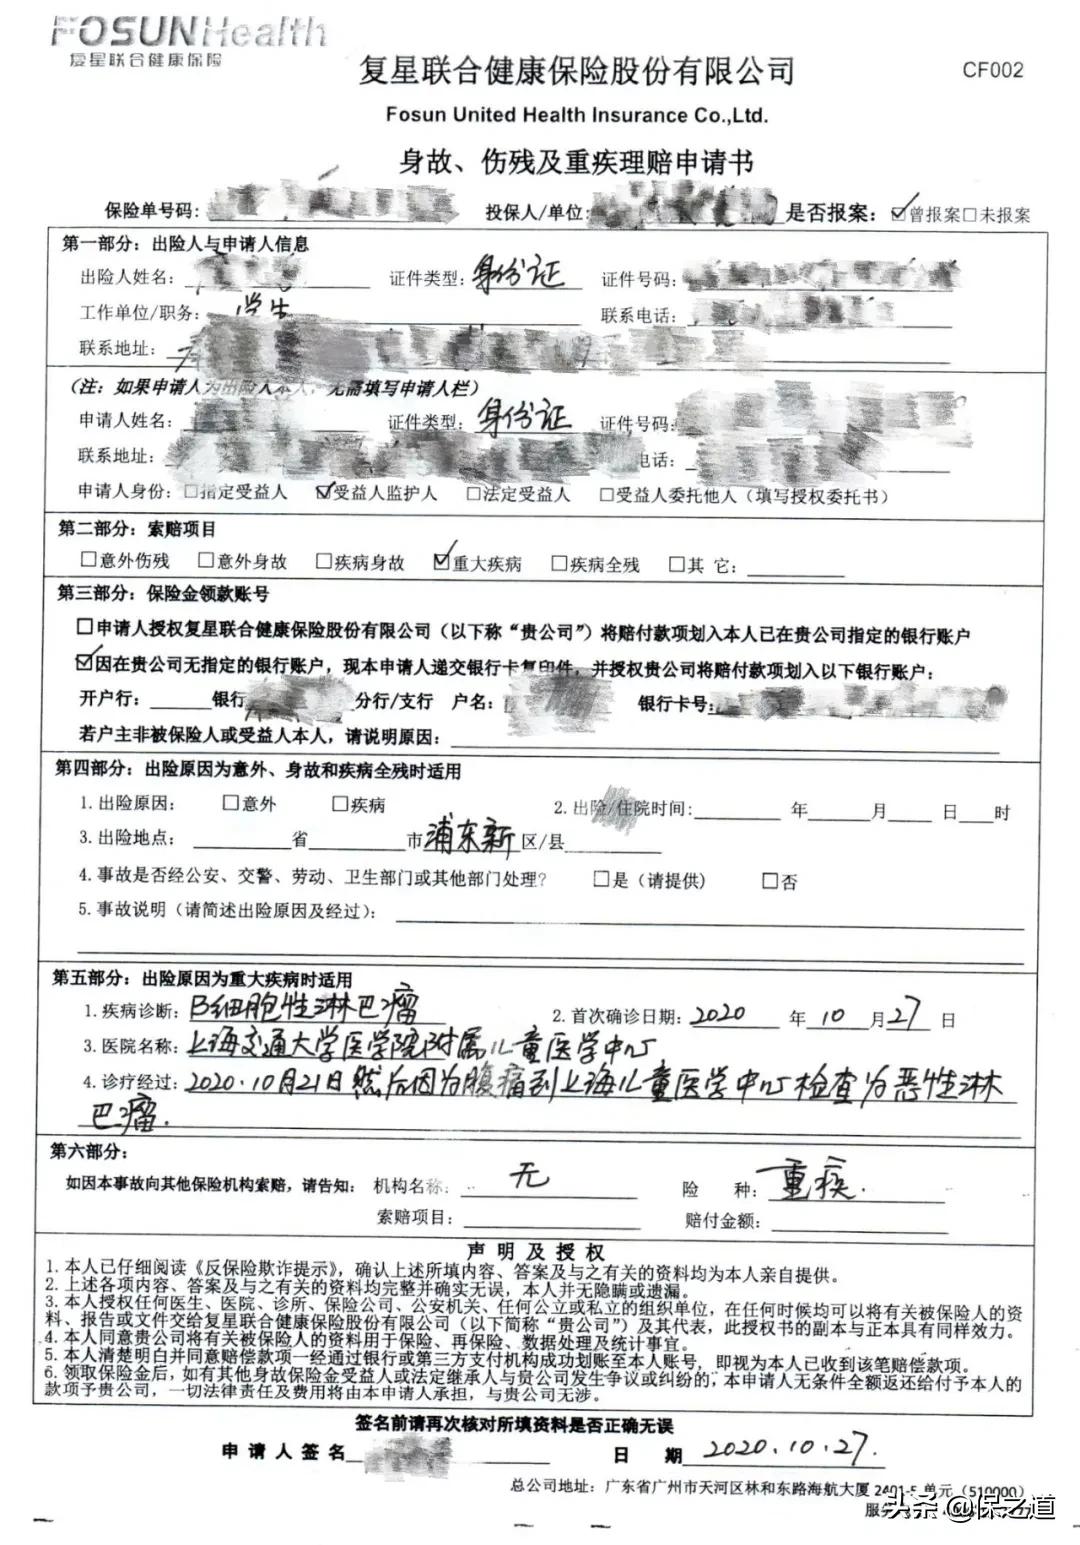 FOSUN Health
复星联合健康保险
复星联合健康保险股份有限公司
CF002
Fosun United Health Insurance Co.,Ltd.
身故、伤残及重疾理赔申请书
保险单号码: 投保人/单位: 是否报案: ☑曾报案□未报案
第一部分: 出险人与申请人信息
出险人姓名: 证件类型: 身份证 证件号码:
工作单位/职务: 学生 联系电话:
联系地址:
(注: 如果申请人为出险人本人,无需填写申请人栏)
申请人姓名: 证件类型: 身份证 证件号码:
联系地址: 电话:
申请人身份: □指定受益人 ☑受益人监护人 □法定受益人 □受益人委托他人(填写授权委托书)
第二部分: 索赔项目
□意外伤残 □意外身故 □疾病身故 ☑重大疾病 □疾病全残 □其 它:
第三部分: 保险金领款账号
□申请人授权复星联合健康保险股份有限公司(以下称“贵公司”)将赔付款项划入本人已在贵公司指定的银行账户
☑因在贵公司无指定的银行账户,现本申请人递交银行卡复印件,并授权贵公司将赔付款项划入以下银行账户:
开户行: 银行 分行/支行 户名: 银行卡号:
若户主非被保险人或受益人本人,请说明原因:
第四部分: 出险原因为意外、身故和疾病全残时适用
1.出险原因: □意外 □疾病 2.出险/住院时间: 年 月 日 时
3.出险地点: 省 市浦东新区/县
4.事故是否经公安、交警、劳动、卫生部门或其他部门处理? □是(请提供) □否
5.事故说明(请简述出险原因及经过):
第五部分: 出险原因为重大疾病时适用
1.疾病诊断: B细胞性淋巴瘤 2.首次确诊日期: 2020 年 10 月 27 日
3.医院名称: 上海交通大学医学院附属儿童医学中心
4.诊疗经过: 2020.10月21日然后因为腹痛到上海儿童医学中心检查为恶性淋
巴瘤.
第六部分:
如因本事故向其他保险机构索赔,请告知: 机构名称: 无 险 种: 重疾.
索赔项目: 赔付金额:
声明及授权
1. 本人已仔细阅读《反保险欺诈提示》,确认上述所填内容、答案及与之有关的资料均为本人亲自提供。
2. 上述各项内容、答案及与之有关的资料均完整并确实无误,本人并无隐瞒或遗漏。
3. 本人授权任何医生、医院、诊所、保险公司、公安机关、任何公立或私立的组织单位,在任何时候均可以将有关被保险人的资
料、报告或文件交给复星联合健康保险股份有限公司(以下简称“贵公司”)及其代表,此授权书的副本与正本具有同样效力。
4. 本人同意贵公司将有关被保险人的资料用于保险、再保险、数据处理及统计事宜。
5. 本人清楚明白并同意赔偿款项一经通过银行或第三方支付机构成功划账至本人账号,即视为本人已收到该笔赔偿款项。
6. 领取保险金后,如有其他身故保险金受益人或法定继承人与贵公司发生争议或纠纷的,本申请人无条件全额返还给付予本人的
款项予贵公司,一切法律责任及费用将由本申请人承担,与贵公司无涉。
签名前请再次核对所填资料是否正确无误
申请人签名 日 期 2020.10.27.
总公司地址: 广东省广州市天河区林和东路海航大厦 2401-5 单元 (510000)
服务
头条 @保之道